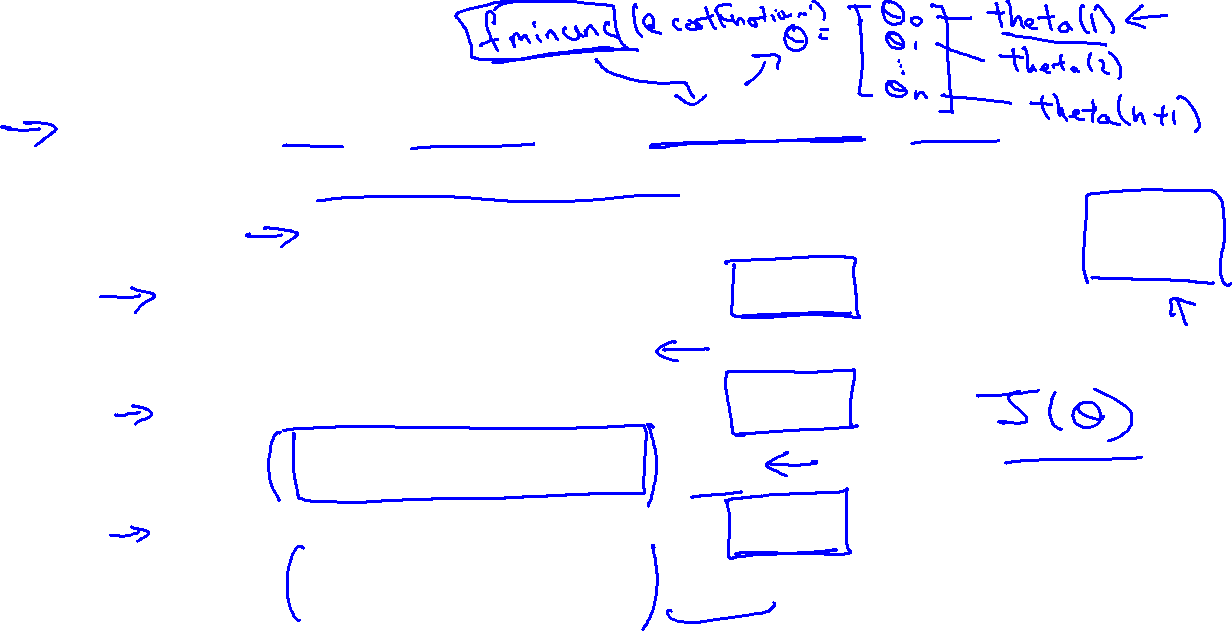 fminunc (@costFunction...)
Θ = [ Θ₀ — theta(1) ←
Θ₁ — theta(2)
⋮
Θn ] — theta(n+1)
J(Θ)